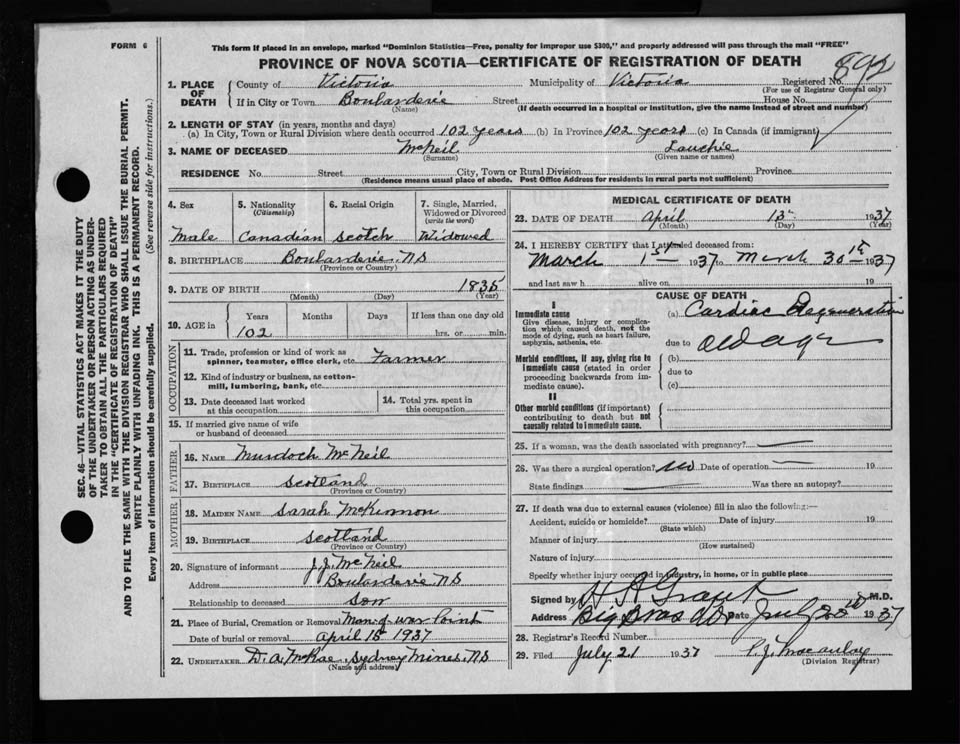 FORM 6
This form if placed in an envelope, marked "Dominion Statistics—Free, penalty for improper use $300," and properly addressed will pass through the mail "FREE"
PROVINCE OF NOVA SCOTIA—CERTIFICATE OF REGISTRATION OF DEATH
892
1. PLACE OF DEATH
County of Victoria Municipality of Victoria Registered No.
(For use of Registrar General only)
If in City or Town Boulardarie Street House No.
(Name) (If death occurred in a hospital or institution, give the name instead of street and number)
2. LENGTH OF STAY (in years, months and days)
(a) In City, Town or Rural Division where death occurred 102 years (b) In Province 102 years (c) In Canada (if immigrant)
3. NAME OF DECEASED McNeil Lauchie
(Surname) (Given name or names)
RESIDENCE No. Street City, Town or Rural Division Province
(Residence means usual place of abode. Post Office Address for residents in rural parts not sufficient)
4. Sex
Male
5. Nationality
(Citizenship)
Canadian
6. Racial Origin
Scotch
7. Single, Married, Widowed or Divorced
(write the word)
Widowed
8. BIRTHPLACE Boulardarie, NS
(Province or Country)
9. DATE OF BIRTH 1835
(Month) (Day) (Year)
10. AGE in
Years Months Days If less than one day old
102 hrs. or min.
OCCUPATION
11. Trade, profession or kind of work as Farmer
spinner, teamster, office clerk, etc.
12. Kind of industry or business, as cotton-
mill, lumbering, bank, etc.
13. Date deceased last worked
at this occupation
14. Total yrs. spent in
this occupation
15. If married give name of wife
or husband of deceased
FATHER
16. NAME Murdoch McNeil
17. BIRTHPLACE Scotland
(Province or Country)
MOTHER
18. MAIDEN NAME Sarah McKinnon
19. BIRTHPLACE Scotland
(Province or Country)
20. Signature of informant J. J. McNeil
Address Boulardarie, NS
Relationship to deceased son
21. Place of Burial, Cremation or Removal Man-of-war Point
Date of burial or removal April 15 1937
22. UNDERTAKER D. A. McRae, Sydney Mines, NS
(Name and address)
MEDICAL CERTIFICATE OF DEATH
23. DATE OF DEATH April 13 1937
(Month) (Day) (Year)
24. I HEREBY CERTIFY that I attended deceased from:
March 1st 1937 to March 30th 1937
and last saw h alive on 19
CAUSE OF DEATH
I
Immediate cause
Give disease, injury or complication which caused death, not the mode of dying, such as heart failure, asphyxia, asthenia, etc.
(a) Cardiac Degeneration
due to old age
Morbid conditions, if any, giving rise to immediate cause (stated in order proceeding backwards from immediate cause).
(b)
due to
(c)
II
Other morbid conditions (if important) contributing to death but not causally related to immediate cause.
25. If a woman, was the death associated with pregnancy?
26. Was there a surgical operation? No Date of operation 19
State findings Was there an autopsy?
27. If death was due to external causes (violence) fill in also the following:—
Accident, suicide or homicide? Date of injury 19
(State which)
Manner of injury
(How sustained)
Nature of injury
Specify whether injury occurred in industry, in home, or in public place
Signed by H A Grant M.D.
Address Big Bras d'Or Date July 20th 1937
28. Registrar's Record Number
29. Filed July 21 1937 P. J. Macaulay
(Division Registrar)
SEC. 46—VITAL STATISTICS ACT MAKES IT THE DUTY
OF THE UNDERTAKER OR PERSON ACTING AS UNDER-
TAKER TO OBTAIN ALL THE PARTICULARS REQUIRED
IN THE "CERTIFICATE OF REGISTRATION OF DEATH"
AND TO FILE THE SAME WITH THE DIVISION REGISTRAR WHO SHALL ISSUE THE BURIAL PERMIT.
WRITE PLAINLY WITH UNFADING INK. THIS IS A PERMANENT RECORD.
Every item of information should be carefully supplied. (See reverse side for instructions.)